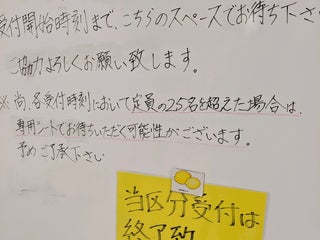 受付開始時刻まで、こちらのスペースでお待ち下さ
ご協力よろしくお願い致します。
※尚、各受付時刻において定員の25名を超えた場合は、
専用シートでお待ちいただく可能性がございます。
予めご了承下さい
当区分受付は
終了致